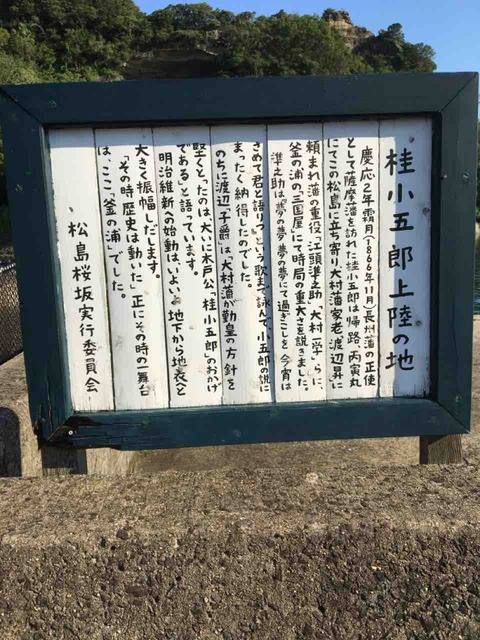 桂小五郎上陸の地
慶応2年霜月(1866年11月)長州藩の正使
として薩摩藩を訪れた桂小五郎は帰路、丙寅丸
にてこの松島に立ち寄り大村藩家老渡辺昇に
頼まれ藩の重役、江頭準之助、大村一学らに、
釜の浦の三国屋にて時局の重大さを説きました。
準之助は夢の夢 夢の夢にて過ぎこしを 今宵は
さめて君と語りぬという歌まで詠んで、小五郎の説に
まったく納得したのでした。
のちに渡辺「子爵」は「大村藩が勤皇の方針を
堅くとったのは、大いに木戸公「桂小五郎」のおかげ
である」と語っています。
明治維新への始動は、いよいよ地下から地表へと
大きく振幅しだします。
「その時歴史は動いた」正にその時の一舞台
は、ここ「釜の浦」でした。
松島桜坂実行委員会